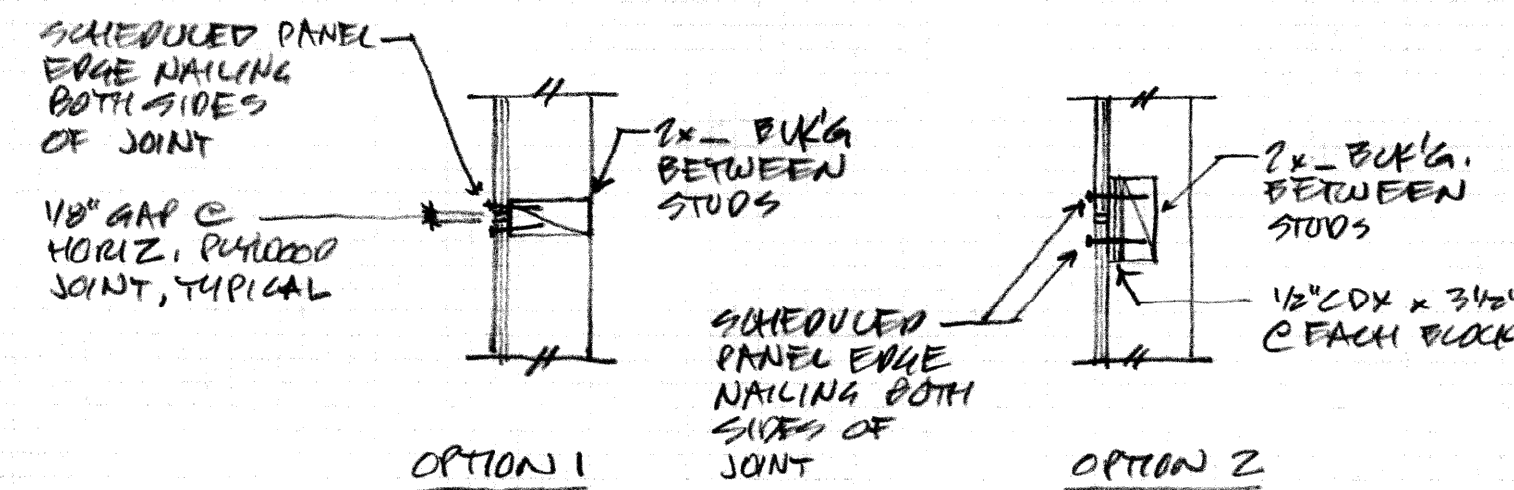 SCHEDULED PANEL
EDGE NAILING
BOTH SIDES
OF JOINT
1/8" GAP @
HORIZ. PLYWOOD
JOINT, TYPICAL
2x_ BLK'G
BETWEEN
STUDS
OPTION 1
SCHEDULED
PANEL EDGE
NAILING BOTH
SIDES OF
JOINT
2x_ BLK'G.
BETWEEN
STUDS
1/2" CDX x 3 1/2"
@ EACH BLOCK
OPTION 2